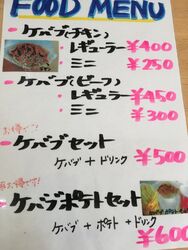 FOOD MENU
・ケバブ(チキン)
・レギュラー ¥400
・ミニ ¥250
・ケバブ(ビーフ)
・レギュラー ¥450
・ミニ ¥300
お得で!?
・ケバブセット
ケバブ + ドリンク ¥500
お得です!
・ケバブポテトセット
ケバブ + ポテト + ドリンク
¥600